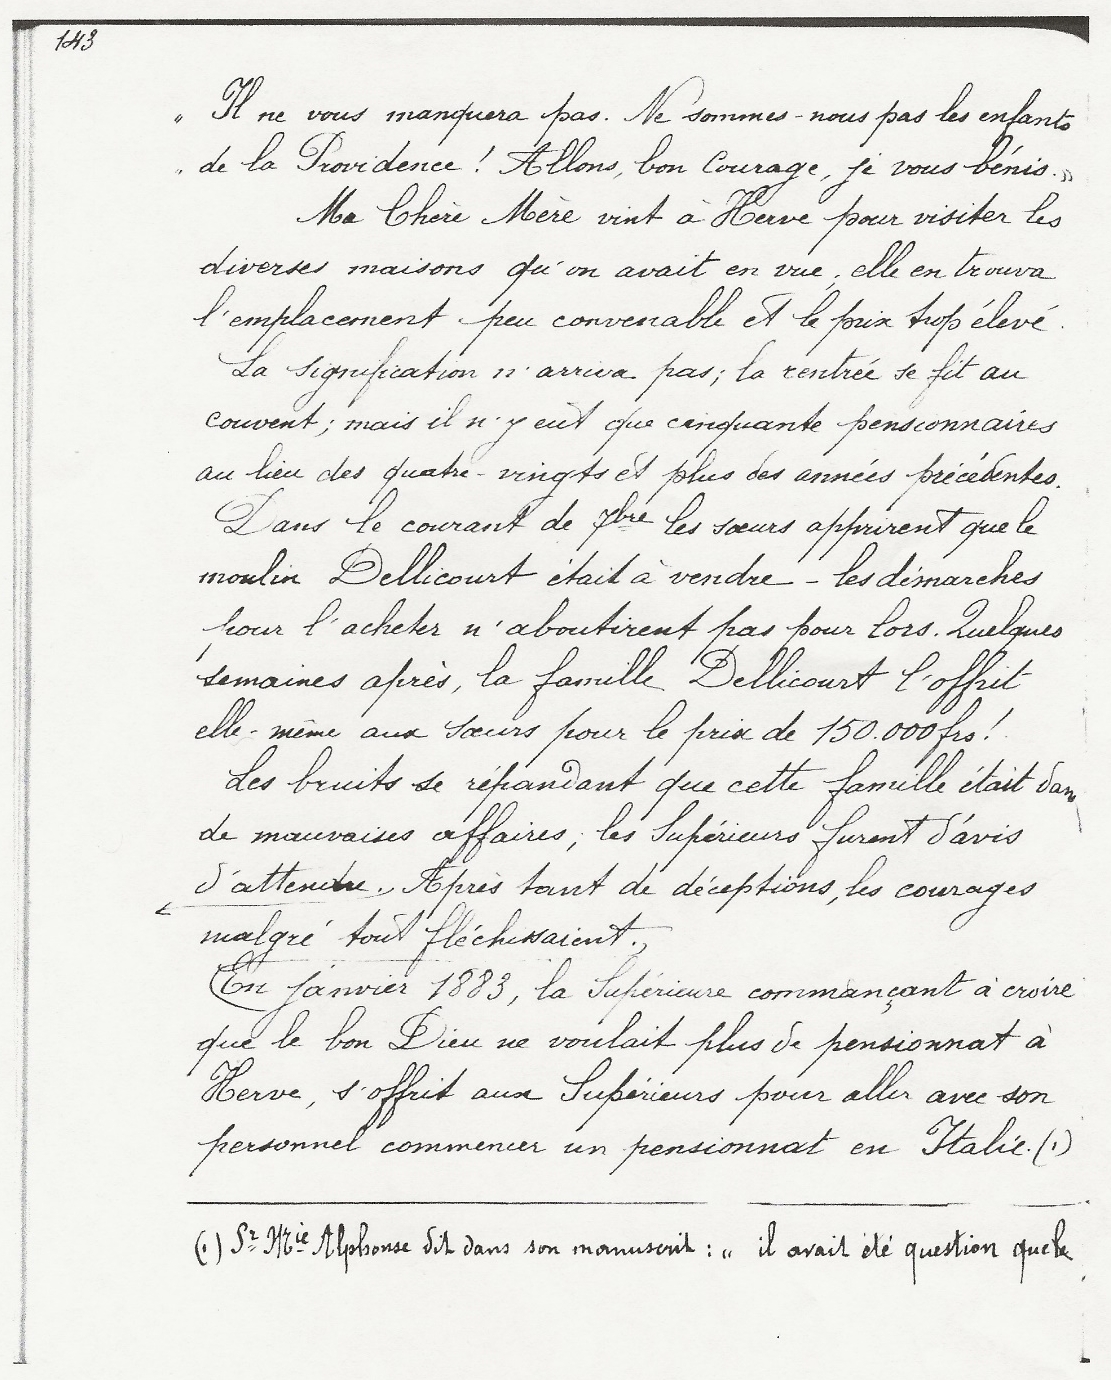 143
„ Il ne vous manquera pas. Ne sommes-nous pas les enfants
„ de la Providence ! Allons, bon courage, je vous bénis.”
Ma Chère Mère vint à Herve pour visiter les
diverses maisons qu'on avait en vue ; elle en trouva
l'emplacement peu convenable et le prix trop élevé.
La signification n'arriva pas ; la rentrée se fit au
couvent ; mais il n'y eut que cinquante pensionnaires
au lieu des quatre-vingts et plus des années précédentes.
Dans le courant de 7bre les sœurs apprirent que le
moulin Dellicourt était à vendre - les démarches
pour l'acheter n'aboutirent pas pour lors. Quelques
semaines après, la famille Dellicourt l'offrit
elle-même aux sœurs pour le prix de 150.000 frs !
Les bruits se répandant que cette famille était dans
de mauvaises affaires, les Supérieurs furent d'avis
d'attendre. Après tant de déceptions, les courages
malgré tout fléchissaient.
En janvier 1883, la Supérieure commançant à croire
que le bon Dieu ne voulait plus de pensionnat à
Herve, s'offrit aux Supérieurs pour aller avec son
personnel commencer un pensionnat en Italie. (1)
(1) Sr Mie Alphonse dit dans son manuscrit : „ il avait été question que le